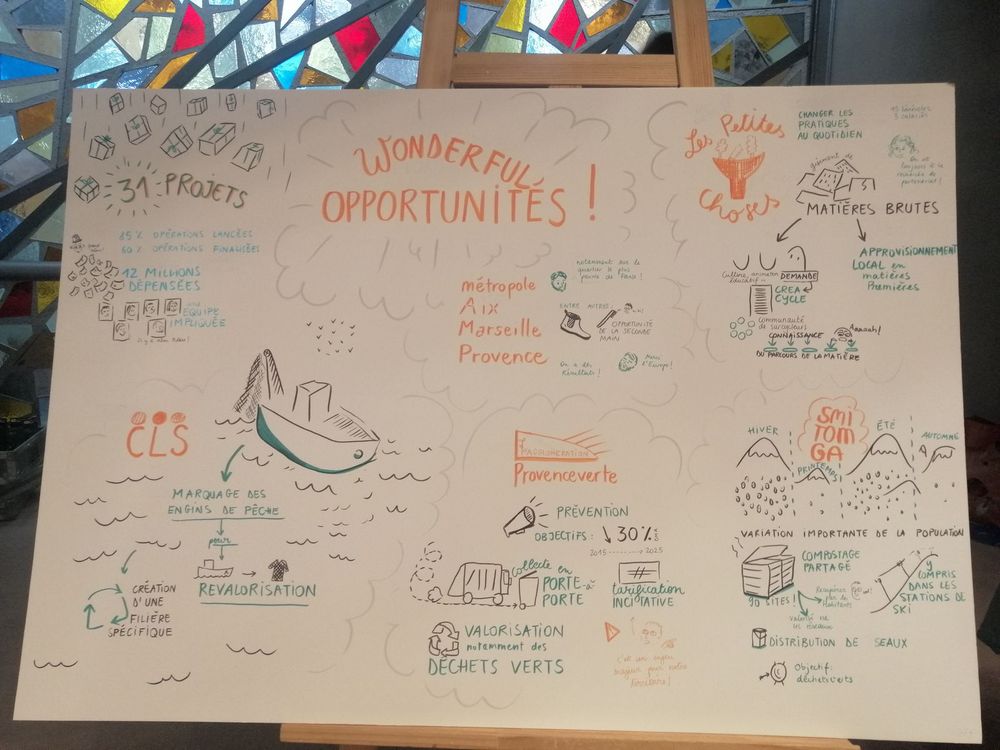 WONDERFUL
OPPORTUNITÉS !
31 PROJETS
85% OPÉRATIONS LANCÉES
60% OPÉRATIONS FINALISÉES
12 MILLIONS
DÉPENSÉES
UNE
ÉQUIPE
IMPLIQUÉE
métropole
Aix
Marseille
Provence
notamment sur le
quartier le plus
pauvre de
ENTRE AUTRES :
OPPORTUNITÉ
DE LA SECONDE
MAIN
On a des
Résultats !
Merci
l'Europe !
Les Petites
Choses
CHANGER LES
PRATIQUES
AU QUOTIDIEN
15 bénévoles
3 salariés
On est
toujours à la
recherche de
partenariat !
gisement de
MATIÈRES BRUTES
Culture, animation
Éducatif
DEMANDE
CREA
CYCLE
Communauté
de surcycleurs
CONNAISSANCE
Aaaaah !
DU PARCOURS DE LA MATIÈRE
APPROVISIONNEMENT
LOCAL en
matières
Premières
CLS
MARQUAGE DES
ENGINS DE PÊCHE
pour
REVALORISATION
CRÉATION
D'UNE
FILIÈRE
SPÉCIFIQUE
l'AGGLOMÉRATION
Provence verte
PRÉVENTION
OBJECTIFS : 30%
2015 2025
collecte en
PORTE-à-
PORTE
tarification
INCITATIVE
VALORISATION
notamment des
DÉCHETS VERTS
c'est un enjeu
majeur pour notre
territoire !
SMI
TOM
GA
HIVER
PRINTEMPS
ÉTÉ
AUTOMNE
VARIATION IMPORTANTE DE LA POPULATION
COMPOSTAGE
PARTAGÉ
90 SITES !
Récupérer
par les
habitants
valorisé via
les réseaux
y
COMPRIS
DANS LES
STATIONS DE
SKI
DISTRIBUTION DE SEAUX
Objectif :
déchets verts